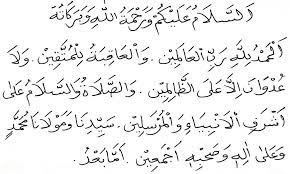 اَلسَّلَامُ عَلَيْكُمْ وَرَحْمَةُ اللهِ وَبَرَكَاتُهُ
اَلْحَمْدُ لِلّٰهِ رَبِّ الْعَالَمِيْنَ . وَالْعَاقِبَةُ لِلْمُتَّقِيْنَ . وَلَا
عُدْوَانَ اِلَّا عَلَى الظَّالِمِيْنَ . وَالصَّلَاةُ وَالسَّلَامُ عَلَى
اَشْرَفِ الْاَنْبِيَاءِ وَالْمُرْسَلِيْنَ . سَيِّدِنَا وَمَوْلَانَا مُحَمَّدٍ
وَعَلَى اٰلِهِ وَصَحْبِهِ اَجْمَعِيْنَ . اَمَّا بَعْدُ .